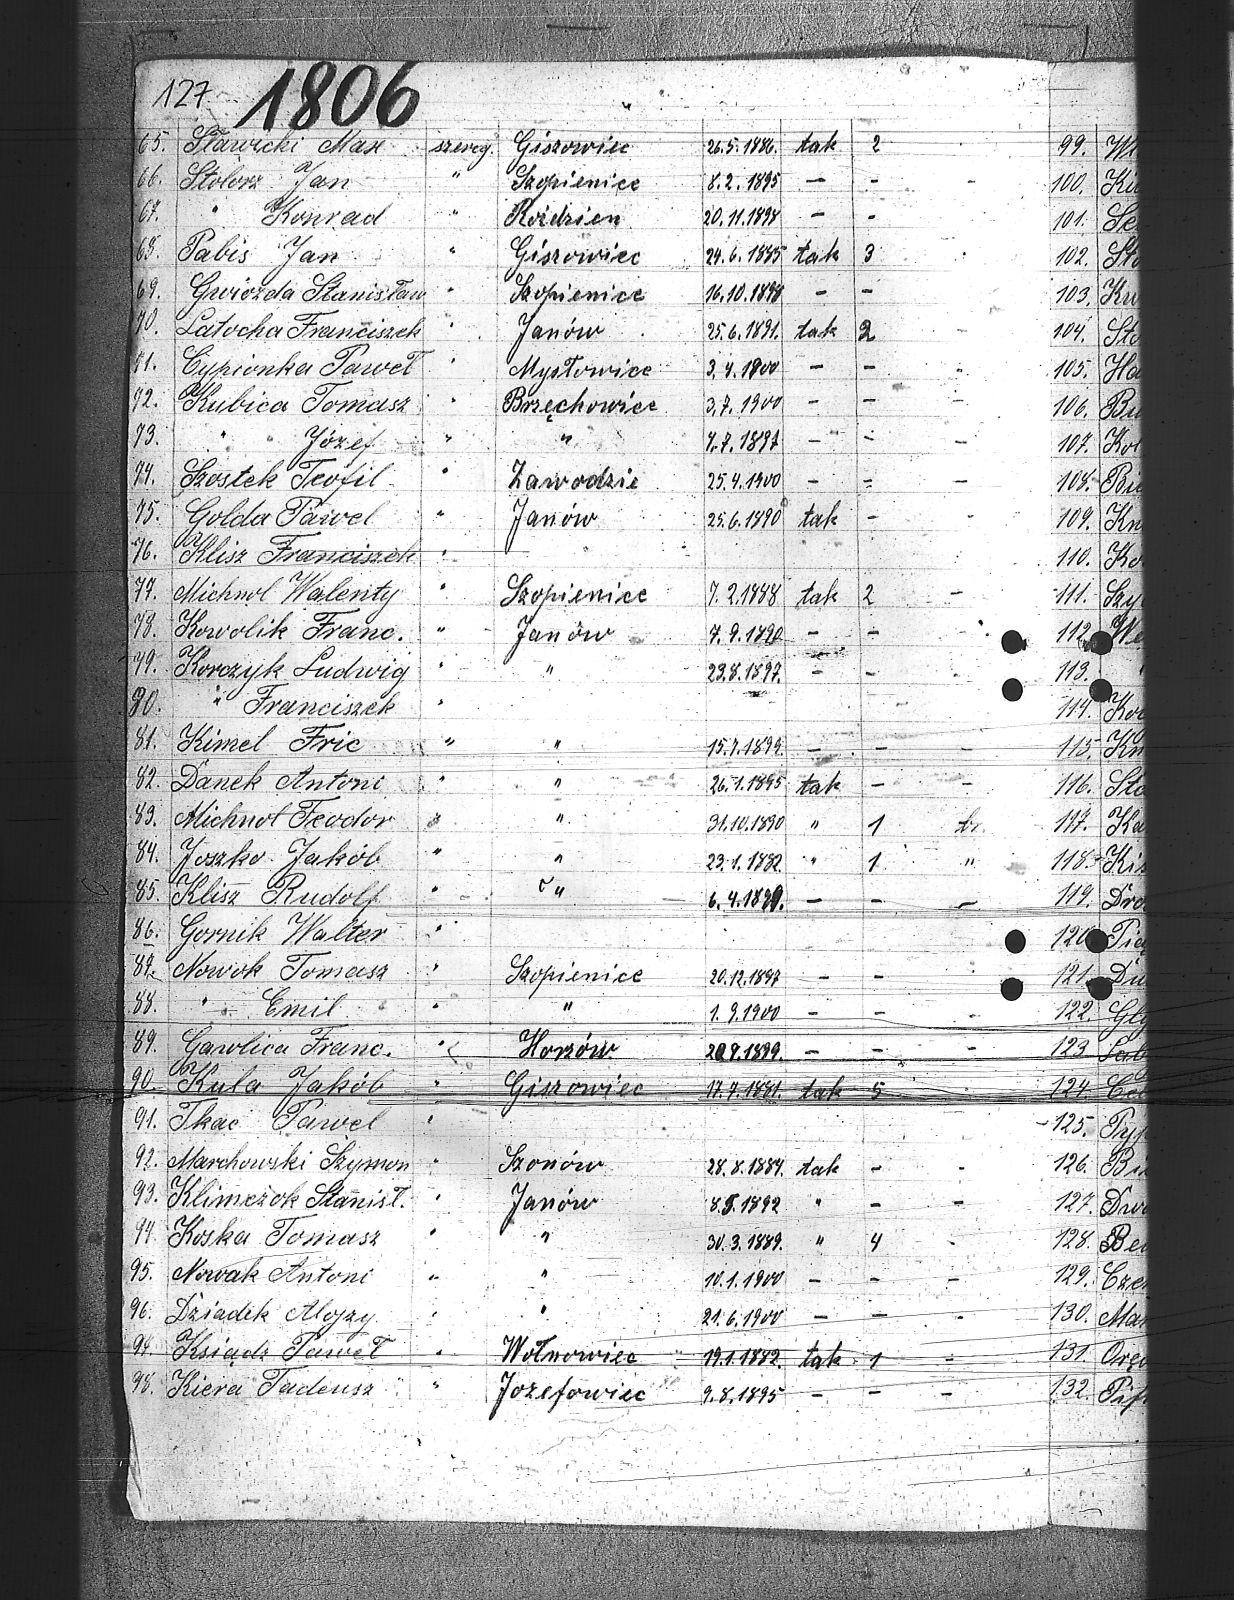 127 1806
65. Sławicki Max szereg. Giszowiec 26.5.1886. tak 2 -
66. Stolorz Jan " Szopienice 8.2.1895 - -
67. " Konrad " Roździen 20.11.1898 - -
68. Pabis Jan " Giszowiec 24.6.1885 tak 3 -
69. Gwiozda Stanisław " Szopienice 16.10.1898 - -
70. Latocha Franciszek " Janów 25.6.1891. tak 2 -
71. Cypionka Paweł " Mysłowice 3.4.1900 - - -
72. Kubica Tomasz " Brzęchowiec 3.7.1900 - - -
73. " " Józef " " 4.7.1897 - - -
74. Szostek Teofil " Zawodzie 25.4.1900 - - -
75. Golda Pawel " Janów 25.6.1890 tak -
76. Klisz Franciszek "
77. Michnol Walenty " Szopienice 7.2.1888 tak 2 -
78. Kowolik Franc. " Janów 7.9.1890 - -
79. Korczyk Ludwig " " 23.8.1897. - -
80. " Franciszek "
81. Kimel Fric " " 15.7.1899. - - -
82. Danek Antoni " " 26.1.1895 tak - -
83. Michnol Teodor " " 31.10.1890 " 1
84. Joszko Jakób " " 23.1.1882. " 1 "
85. Klisz Rudolf " " 6.4.1899. - - -
86. Gornik Walter "
87. Nowok Tomasz " Szopienice 20.12.1897 - -
88. " Emil " " 1.9.1900 - - -
89. Gawlica Franc. " Horzów 20.9.1899. - - -
90. Kula Jakób " Giszowiec 17.7.1881. tak 5 -
91. Tkac Pawel "
92. Marchowski Szymon " Szonów 28.8.1884. tak - -
93. Klimczok Stanisł. " Janów 8.5.1892 " - -
94. Koska Tomasz " " 30.3.1889. " 4 -
95. Nowak Antoni " " 10.1.1900 - - -
96. Dziadek Alojzy " " 21.6.1900 - -
97. Ksiądz Paweł " Wołnowiec 19.1.1882. tak 1 -
98. Kiera Tadeusz " Jozefowiec 9.8.1895 - - -
99.
100.
101.
102.
103.
104.
105.
106.
107.
108.
109.
110.
111.
112.
113.
114.
115.
116.
117.
118.
119.
120.
121.
122.
123
124.
125.
126.
127.
128.
129.
130.
131.
132.